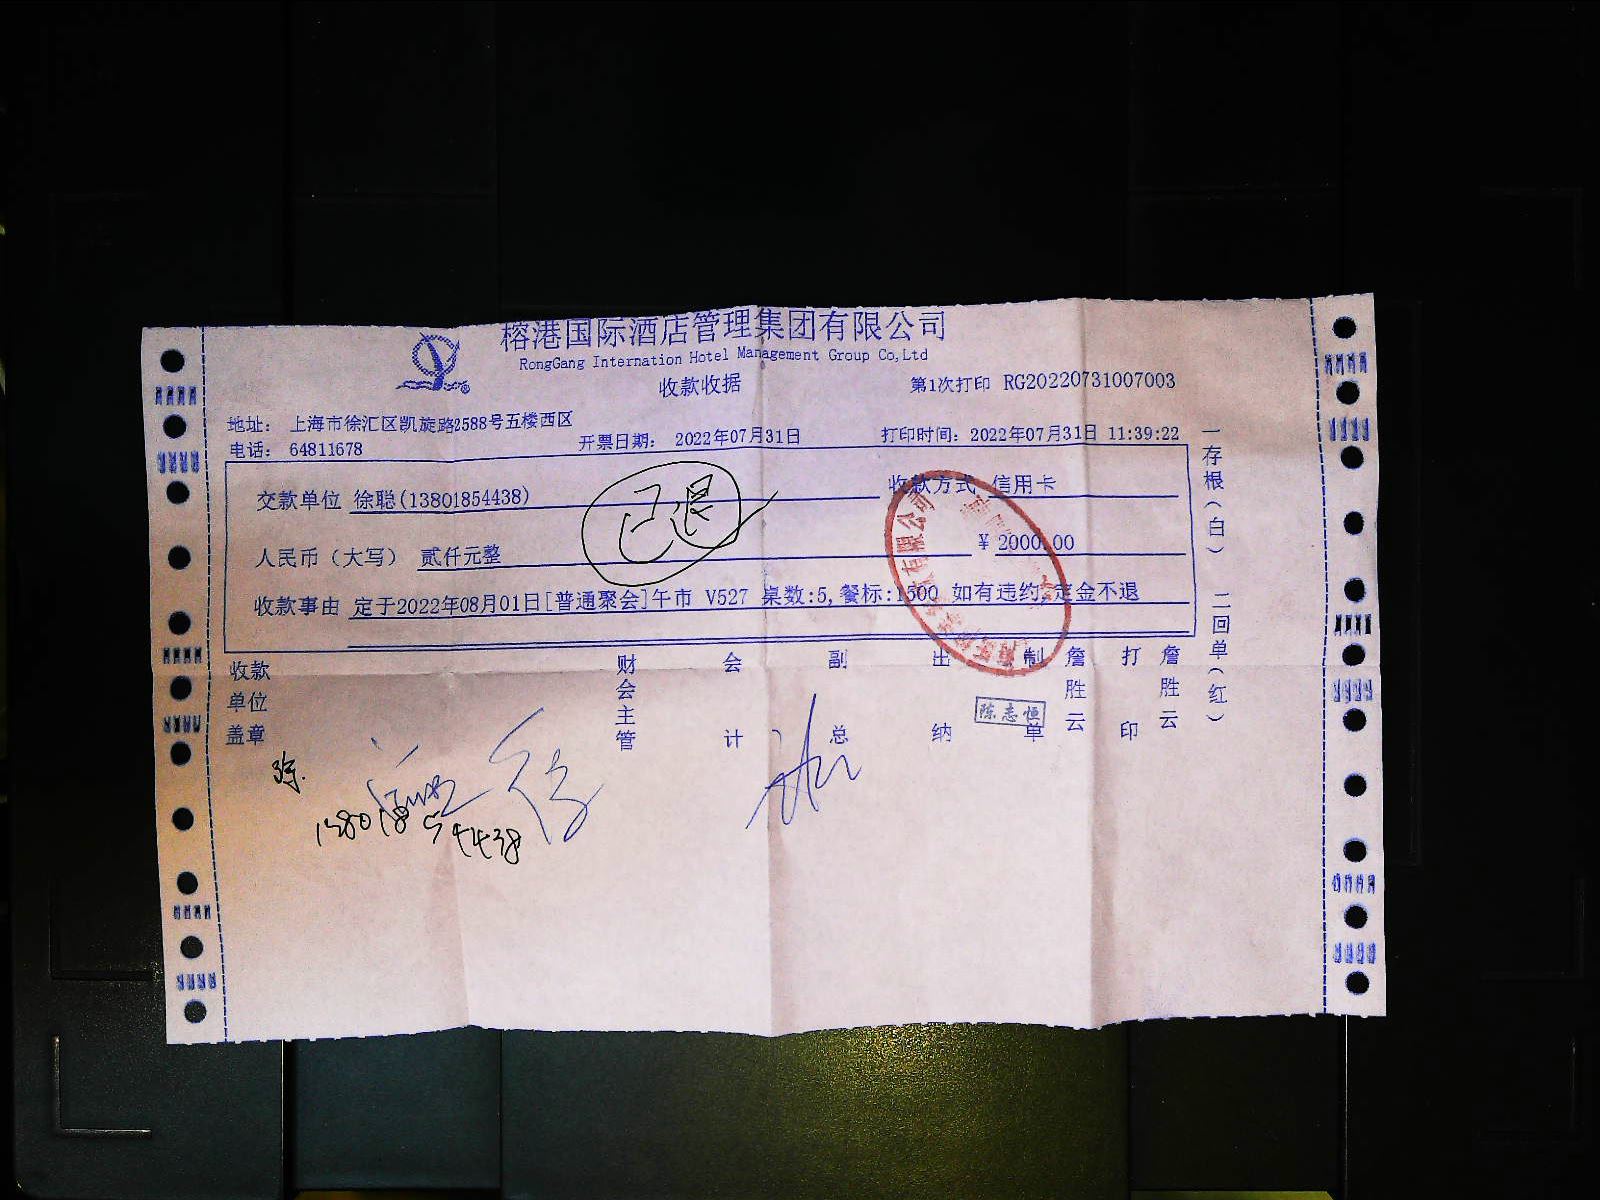 榕港国际酒店管理集团有限公司
RongGang Internation Hotel Management Group Co,Ltd
收款收据
第1次打印 RG20220731007003
地址： 上海市徐汇区凯旋路2588号五楼西区
电话： 64811678
开票日期： 2022年07月31日
打印时间：2022年07月31日 11:39:22
交款单位 徐聪(13801854438)
收款方式 信用卡
已退
人民币（大写） 贰仟元整
¥ 2000.00
收款事由 定于2022年08月01日[普通聚会]午市 V527 桌数:5,餐标:1500 如有违约,定金不退
收款单位盖章
财会主管
会计
副总
出纳
制单
詹胜云
打印
詹胜云
陈志恒
一存根（白） 二回单（红）
有限公司
13801854438